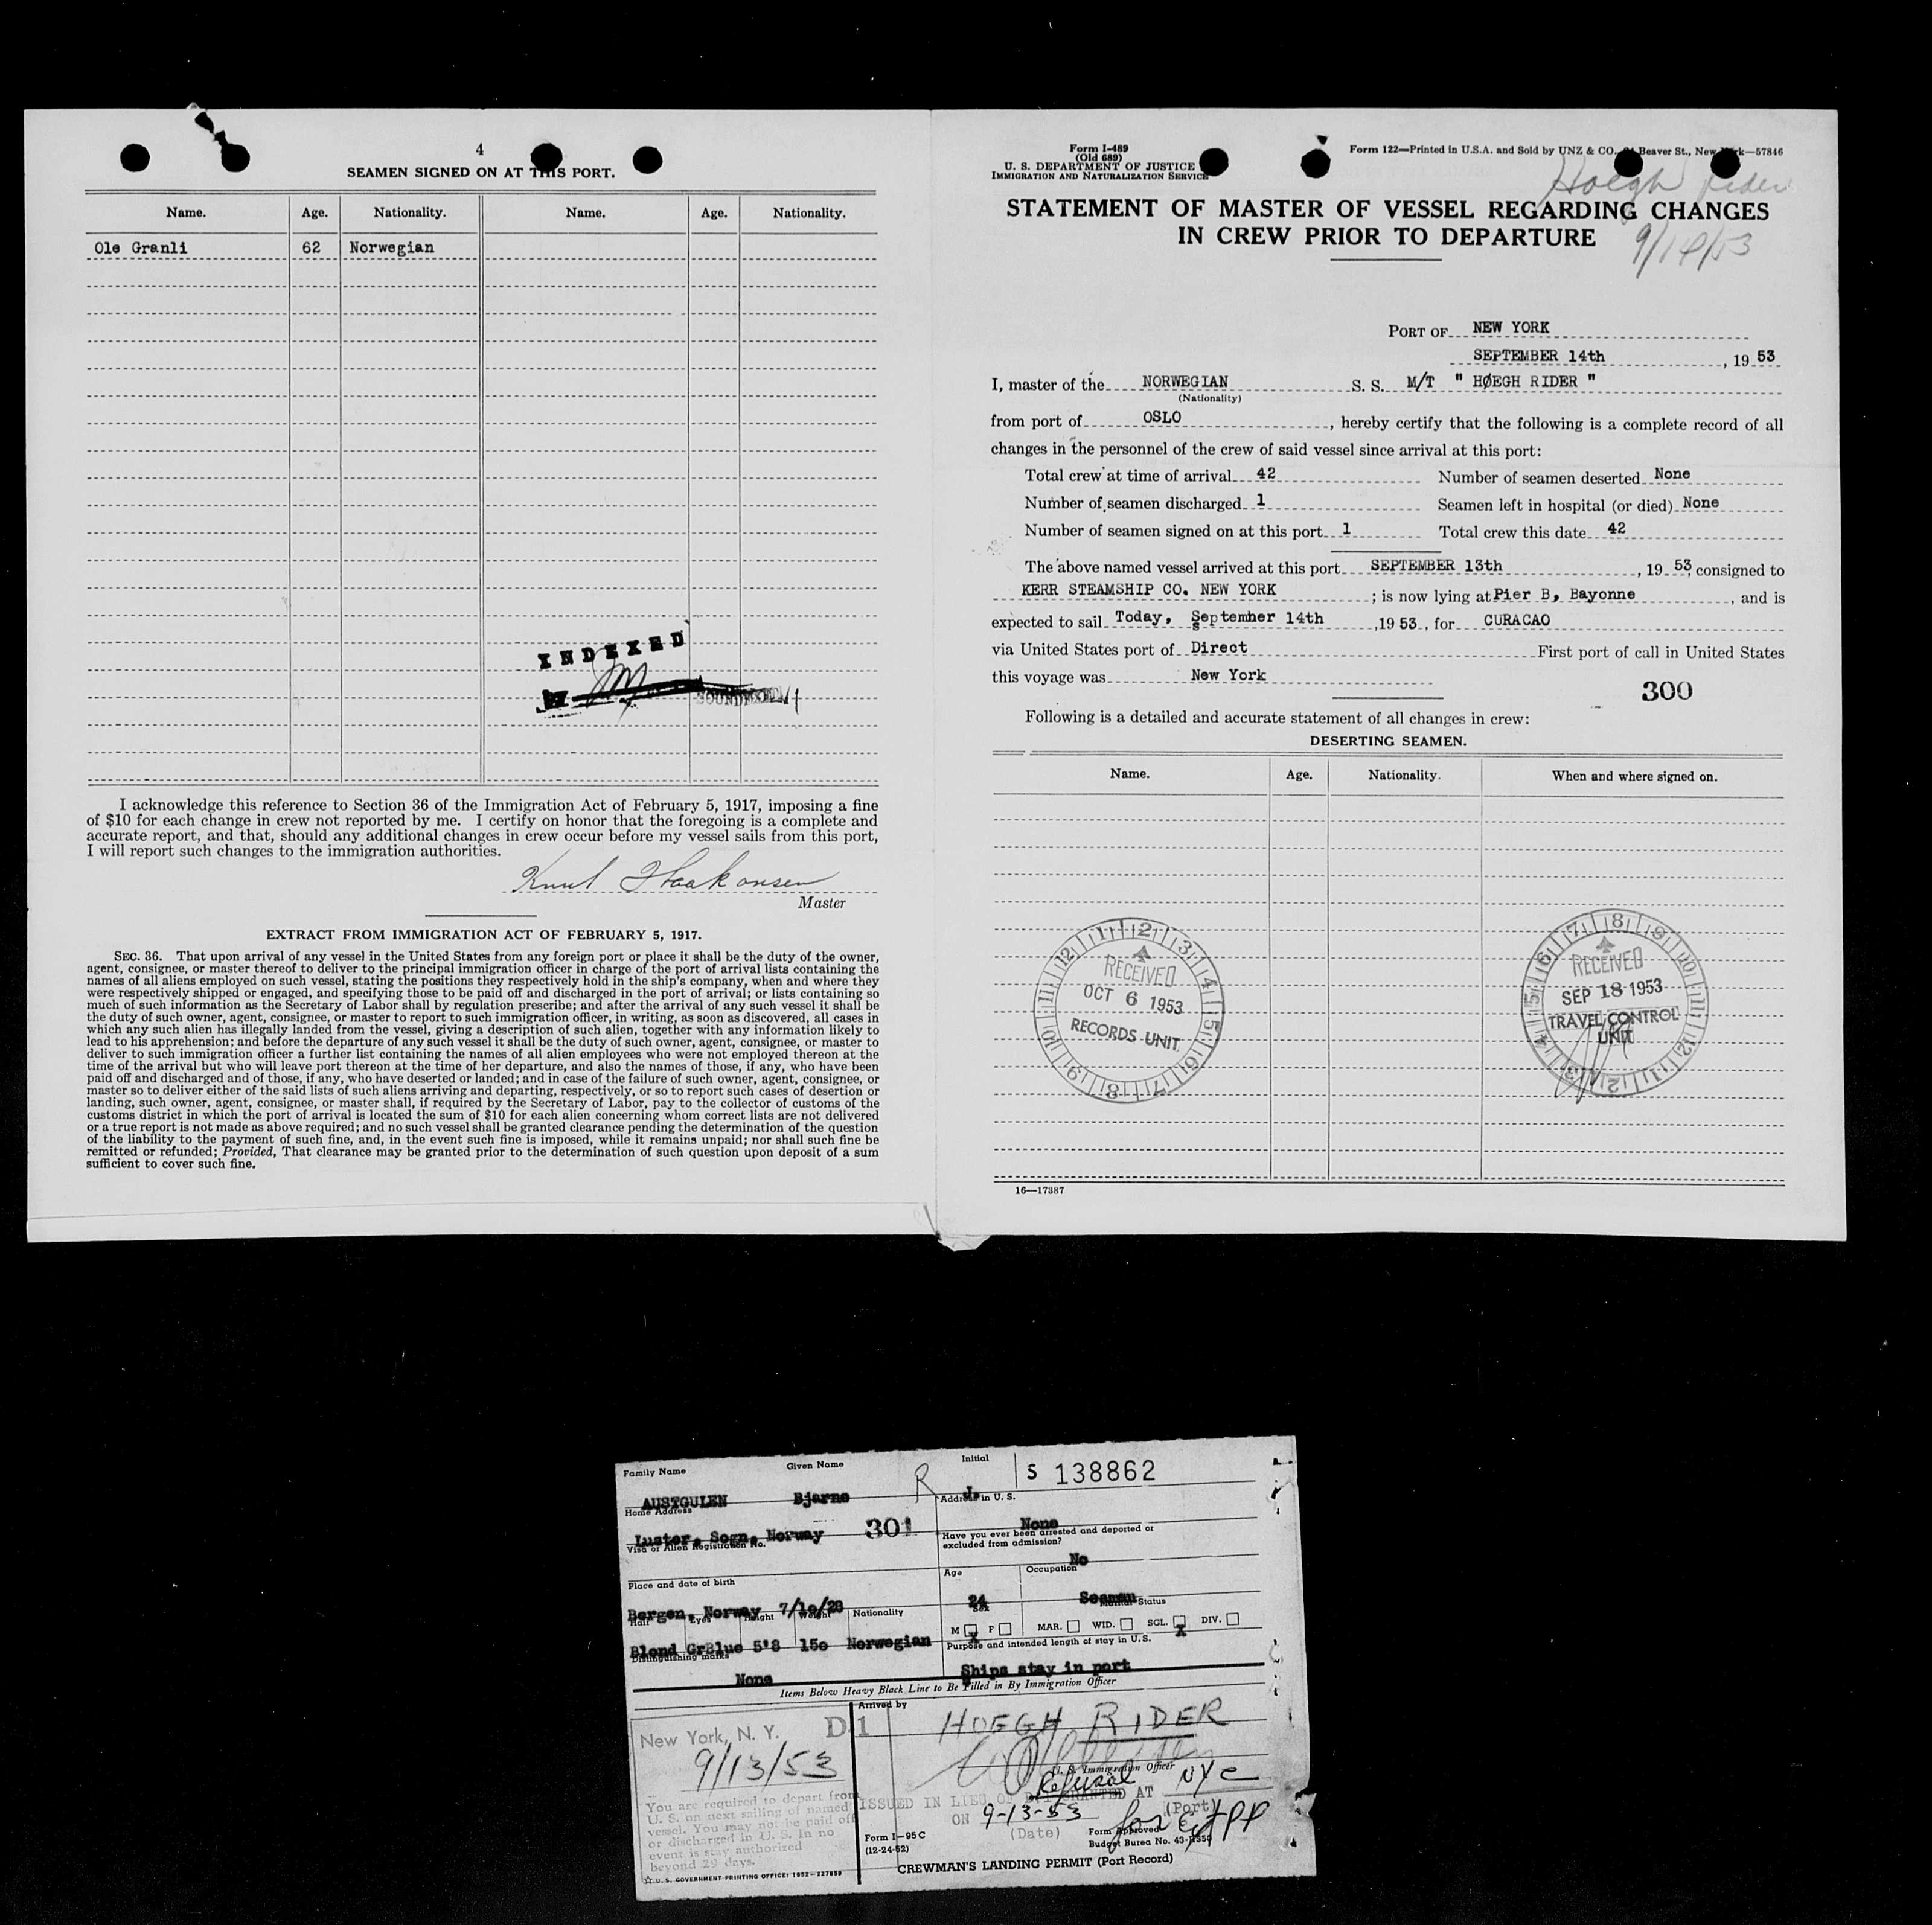 4
SEAMEN SIGNED ON AT THIS PORT.
Name. Age. Nationality. Name. Age. Nationality.
Ole Granli 62 Norwegian
INDEXED
I acknowledge this reference to Section 36 of the Immigration Act of February 5, 1917, imposing a fine
of $10 for each change in crew not reported by me. I certify on honor that the foregoing is a complete and
accurate report, and that, should any additional changes in crew occur before my vessel sails from this port,
I will report such changes to the immigration authorities.
Knut Haakonsen
Master
EXTRACT FROM IMMIGRATION ACT OF FEBRUARY 5, 1917.
SEC. 36. That upon arrival of any vessel in the United States from any foreign port or place it shall be the duty of the owner,
agent, consignee, or master thereof to deliver to the principal immigration officer in charge of the port of arrival lists containing the
names of all aliens employed on such vessel, stating the positions they respectively hold in the ship's company, when and where they
were respectively shipped or engaged, and specifying those to be paid off and discharged in the port of arrival; or lists containing so
much of such information as the Secretary of Labor shall by regulation prescribe; and after the arrival of any such vessel it shall be
the duty of such owner, agent, consignee, or master to report to such immigration officer, in writing, as soon as discovered, all cases in
which any such alien has illegally landed from the vessel, giving a description of such alien, together with any information likely to
lead to his apprehension; and before the departure of any such vessel it shall be the duty of such owner, agent, consignee, or master to
deliver to such immigration officer a further list containing the names of all alien employees who were not employed thereon at the
time of the arrival but who will leave port thereon at the time of her departure, and also the names of those, if any, who have been
paid off and discharged and of those, if any, who have deserted or landed; and in case of the failure of such owner, agent, consignee, or
master so to deliver either of the said lists of such aliens arriving and departing, respectively, or so to report such cases of desertion or
landing, such owner, agent, consignee, or master shall, if required by the Secretary of Labor, pay to the collector of customs of the
customs district in which the port of arrival is located the sum of $10 for each alien concerning whom correct lists are not delivered
or a true report is not made as above required; and no such vessel shall be granted clearance pending the determination of the question
of the liability to the payment of such fine, and, in the event such fine is imposed, while it remains unpaid; nor shall such fine be
remitted or refunded; Provided, That clearance may be granted prior to the determination of such question upon deposit of a sum
sufficient to cover such fine.
Form I-489
(Old 689)
U. S. DEPARTMENT OF JUSTICE
IMMIGRATION AND NATURALIZATION SERVICE
Form 122—Printed in U.S.A. and Sold by UNZ & CO., Beaver St., New York—57846
Hoegh Rider
STATEMENT OF MASTER OF VESSEL REGARDING CHANGES
IN CREW PRIOR TO DEPARTURE
9/14/53
PORT OF NEW YORK
SEPTEMBER 14th, 19 53
I, master of the NORWEGIAN S. S. M/T " HØEGH RIDER "
(Nationality)
from port of OSLO, hereby certify that the following is a complete record of all
changes in the personnel of the crew of said vessel since arrival at this port:
Total crew at time of arrival 42 Number of seamen deserted None
Number of seamen discharged 1 Seamen left in hospital (or died) None
Number of seamen signed on at this port 1 Total crew this date 42
The above named vessel arrived at this port SEPTEMBER 13th, 19 53, consigned to
KERR STEAMSHIP CO. NEW YORK; is now lying at Pier B, Bayonne, and is
expected to sail Today, September 14th, 19 53, for CURACAO
via United States port of Direct First port of call in United States
this voyage was New York
300
Following is a detailed and accurate statement of all changes in crew:
DESERTING SEAMEN.
Name. Age. Nationality. When and where signed on.
RECEIVED
OCT 6 1953
RECORDS UNIT
RECEIVED
SEP 18 1953
TRAVEL CONTROL
UNIT
16—17387
Family Name Given Name Initial
S 138862
AUSTGULEN Bjarne R J.
Home Address Address in U. S.
Luster, Sogn, Norway 301 None
Visa or Alien Registration No. Have you ever been arrested and deported or
excluded from admission?
No
Place and date of birth Age Occupation
Bergen, Norway 7/10/28 24 Seaman
Hair Eyes Height Weight Nationality Sex Marital Status
M X F MAR. WID. SGL. X DIV.
Blond GrBlue 5'8 150 Norwegian
Distinguishing marks Purpose and intended length of stay in U.S.
None Ships stay in port
Items Below Heavy Black Line to Be Filled in By Immigration Officer
New York, N. Y. D 1
9/13/53
You are required to depart from
U. S. on next sailing of named
vessel. You may not be paid off
or discharged in U. S. In no
event is stay authorized
beyond 29 days.
☆ U. S. GOVERNMENT PRINTING OFFICE: 1952—227859
Arrived by
HOEGH RIDER
U. S. Immigration Officer
Refusal NYC
ISSUED IN LIEU OF GRANTED AT (Port)
ON 9-13-53
(Date)
for
Form I-95 C
(12-24-52)
Form Approved
Budget Bureau No. 43-R350
CREWMAN'S LANDING PERMIT (Port Record)